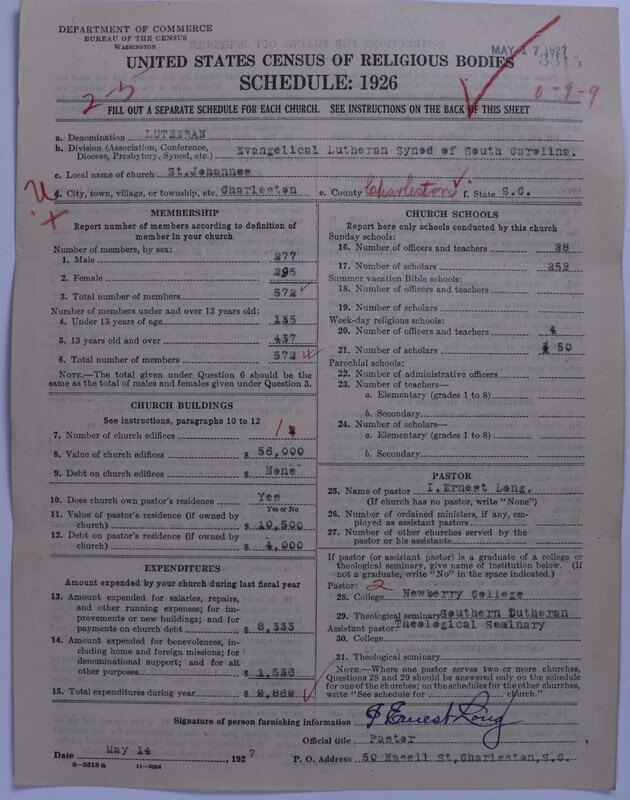 DEPARTMENT OF COMMERCE
BUREAU OF THE CENSUS
WASHINGTON
MAY 17 1927
UNITED STATES CENSUS OF RELIGIOUS BODIES
SCHEDULE: 1926
2-5
0-9-9
FILL OUT A SEPARATE SCHEDULE FOR EACH CHURCH. SEE INSTRUCTIONS ON THE BACK OF THIS SHEET
a. Denomination LUTHERAN
b. Division (Association, Conference, Diocese, Presbytery, Synod, etc.) Evangelical Lutheran Synod of South Carolina.
c. Local name of church St.Johannes
d. City, town, village, or township, etc. Charleston e. County Charleston f. State S.C.
MEMBERSHIP
Report number of members according to definition of
member in your church
Number of members, by sex:
1. Male 277
2. Female 295
3. Total number of members 572
Number of members under and over 13 years old:
4. Under 13 years of age 135
5. 13 years old and over 437
6. Total number of members 572
NOTE.—The total given under Question 6 should be
same as the total of males and females given under Question 3.
CHURCH BUILDINGS
See instructions, paragraphs 10 to 12
7. Number of church edifices 1
8. Value of church edifices $ 56,000
9. Debt on church edifices $ None
10. Does church own pastor's residence Yes
Yes or No
11. Value of pastor's residence (if owned by
church) $ 10,500
12. Debt on pastor's residence (if owned by
church) $ 4,000
EXPENDITURES
Amount expended by your church during last fiscal year
13. Amount expended for salaries, repairs,
and other running expenses; for im-
provements or new buildings; and for
payments on church debt $ 8,333
14. Amount expended for benevolences, in-
cluding home and foreign missions; for
denominational support; and for all
other purposes $ 1,536
15. Total expenditures during year $
CHURCH SCHOOLS
Report here only schools conducted by this church
Sunday schools:
16. Number of officers and teachers 28
17. Number of scholars 252
Summer vacation Bible schools:
18. Number of officers and teachers
19. Number of scholars
Week-day religious schools:
20. Number of officers and teachers 4
21. Number of scholars 50
Parochial schools:
22. Number of administrative officers
23. Number of teachers—
a. Elementary (grades 1 to 8)
b. Secondary
24. Number of scholars—
a. Elementary (grades 1 to 8)
b. Secondary
PASTOR
25. Name of pastor I.Ernest Long.
(If church has no pastor, write "None")
26. Number of ordained ministers, if any, em-
ployed as assistant pastors
27. Number of other churches served by the
pastor or his assistants
If pastor (or assistant pastor) is a graduate of a college or
theological seminary, give name of institution below. (If
not a graduate, write "No" in the space indicated.)
Pastor: 2
28. College Newberry College
29. Theological seminary Southern Lutheran
Assistant pastor: Theological Seminary
30. College
31. Theological seminary
NOTE.—Where one pastor serves two or more churches,
Questions 28 and 29 should be answered only on the schedule
for one of the churches; on the schedules for the other churches,
write "See schedule for church."
Signature of person furnishing information I Ernest Long
Official title Pastor
Date May 14 1927 P. O. Address 50 Hasell St,Charleston,S.C.
8—5518a 11—9554